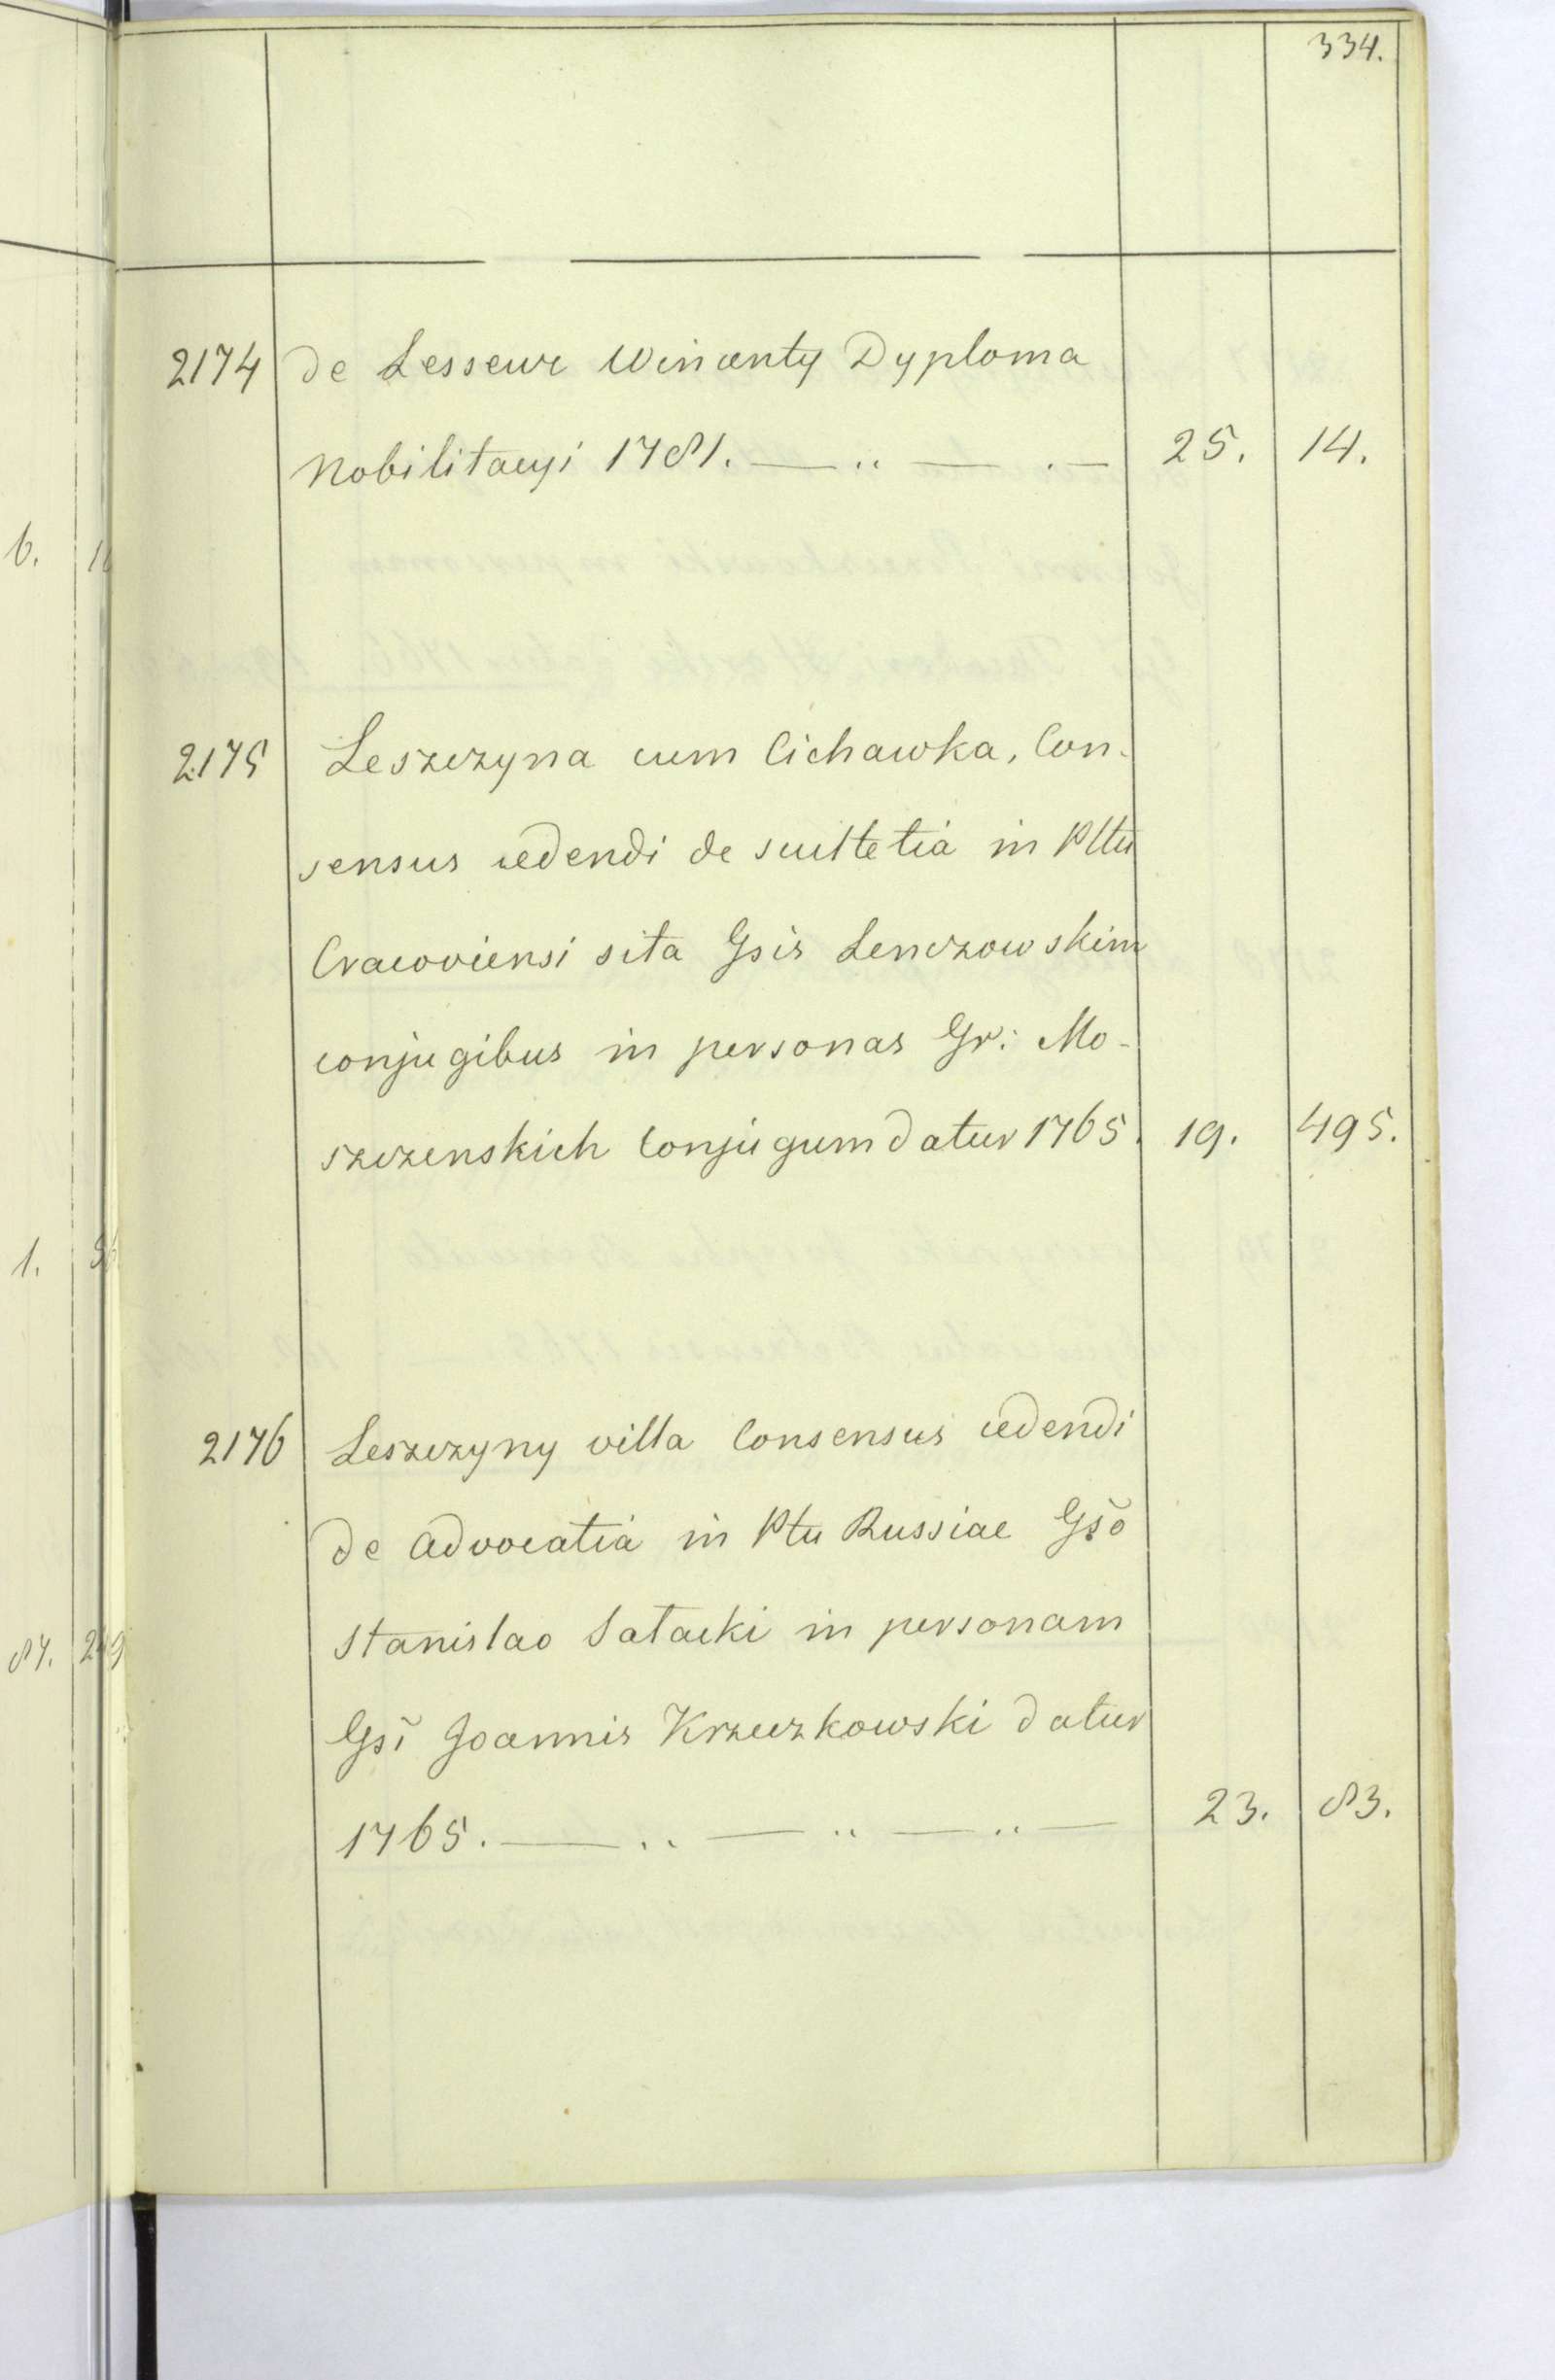 334.
2174 de Lesseur Wincenty Dyploma
Nobilitacyi 1781. — .. — . — 25. 14.
2175 Leszczyna cum Cichawka, Con-
sensus cedendi de scultetia in Pttu
Cracoviensi sita Gsis Lenczowskim
conjugibus in personas Gr: Mo-
szczenskich Conjugum datur 1765. 19. 495.
2176 Leszczyny villa Consensus cedendi
de Advocatia in Ptu Russiae Gso
Stanislao Satacki in personam
Gsi Joannis Krzeczkowski datur
1765. — .. — .. — .. — 23. 83.